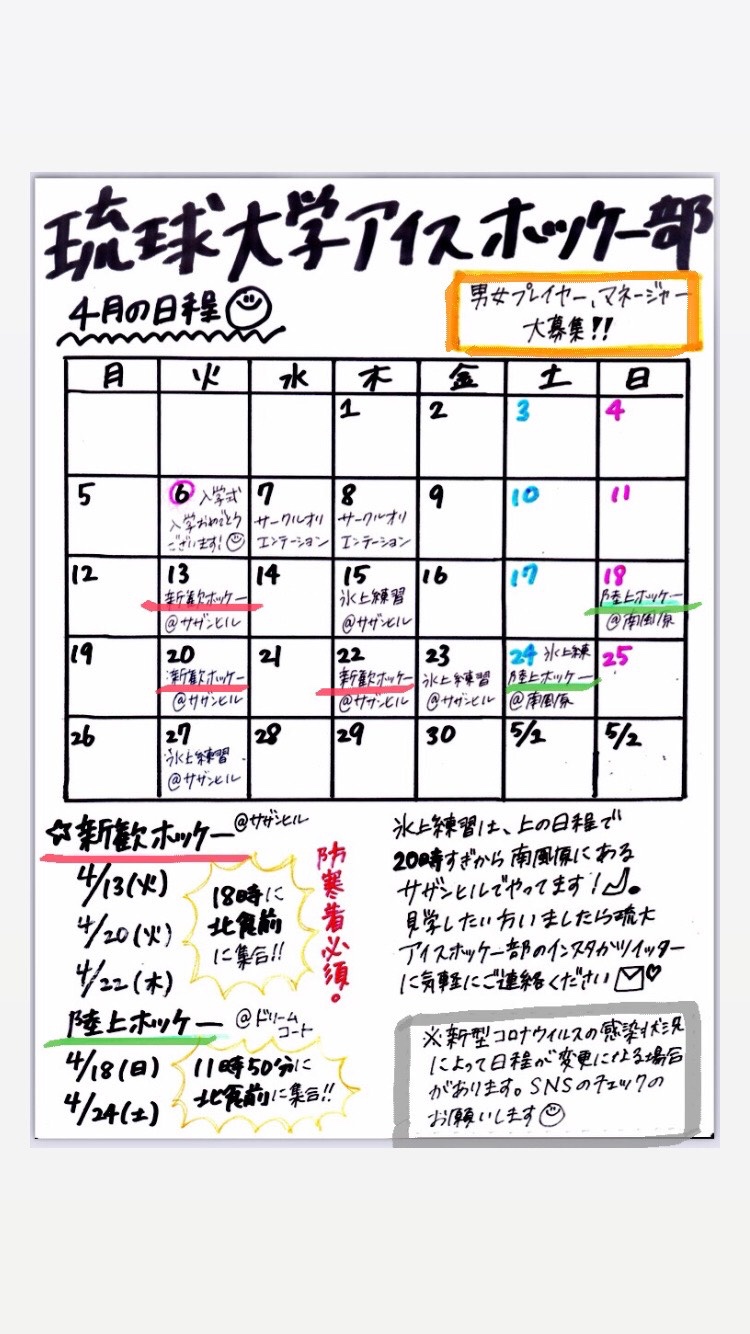 琉球大学アイスホッケー部
4月の日程
男女プレイヤー、マネージャー
大募集!!
月 火 水 木 金 土 日
1 2 3 4
5 6 入学式 7 8 9 10 11
入学おめでとう サークルオリ サークルオリ
ございます! エンテーション エンテーション
12 13 14 15 16 17 18
新歓ホッケー 氷上練習 陸上ホッケー
@サザンヒル @サザンヒル @南風原
19 20 21 22 23 24 氷上練 25
新歓ホッケー 新歓ホッケー 氷上練習 陸上ホッケー
@サザンヒル @サザンヒル @サザンヒル @南風原
26 27 28 29 30 5/1 5/2
氷上練習
@サザンヒル
☆新歓ホッケー @サザンヒル
4/13(火)
4/20(火)
4/22(木)
18時に
北食前
に集合!!
防寒着必須。
陸上ホッケー @ドリーム
コート
4/18(日)
4/24(土)
11時50分に
北食前に集合!!
氷上練習は、上の日程で
20時すぎから南風原にある
サザンヒルでやってます!
見学したい方いましたら琉大
アイスホッケー部のインスタかツイッター
に気軽にご連絡ください
※新型コロナウイルスの感染状況
によって日程が変更になる場合
があります。SNSのチェックの
お願いします